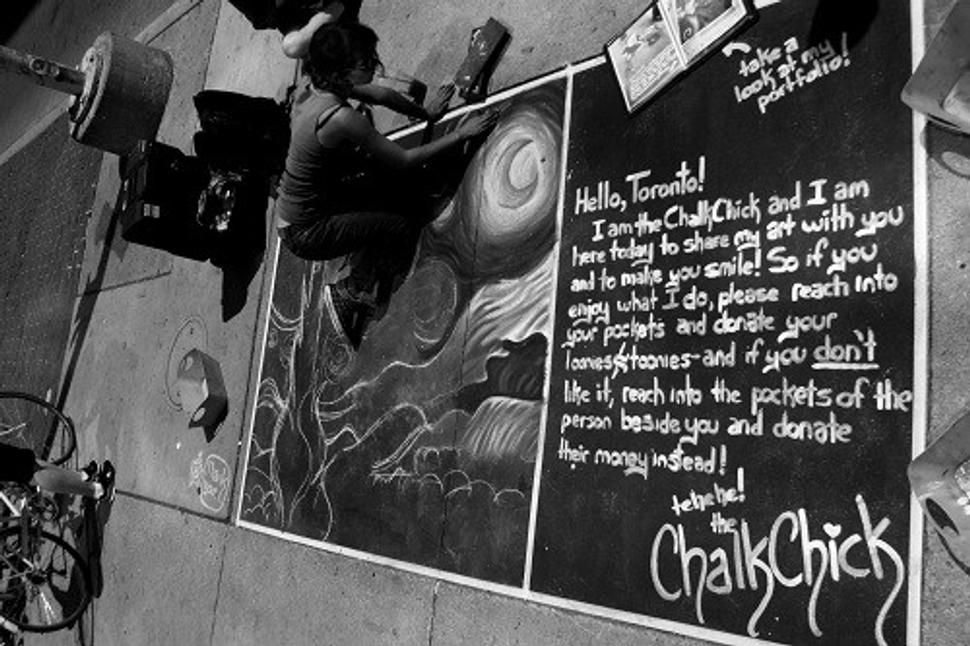 take a
look at my
portfolio!
Hello, Toronto!
I am the ChalkChick and I am
here today to share my art with you
and to make you smile! So if you
enjoy what I do, please reach into
your pockets and donate your
loonies & toonies - and if you don't
like it, reach into the pockets of the
person beside you and donate
their money instead!
tehehe!
the
ChalkChick